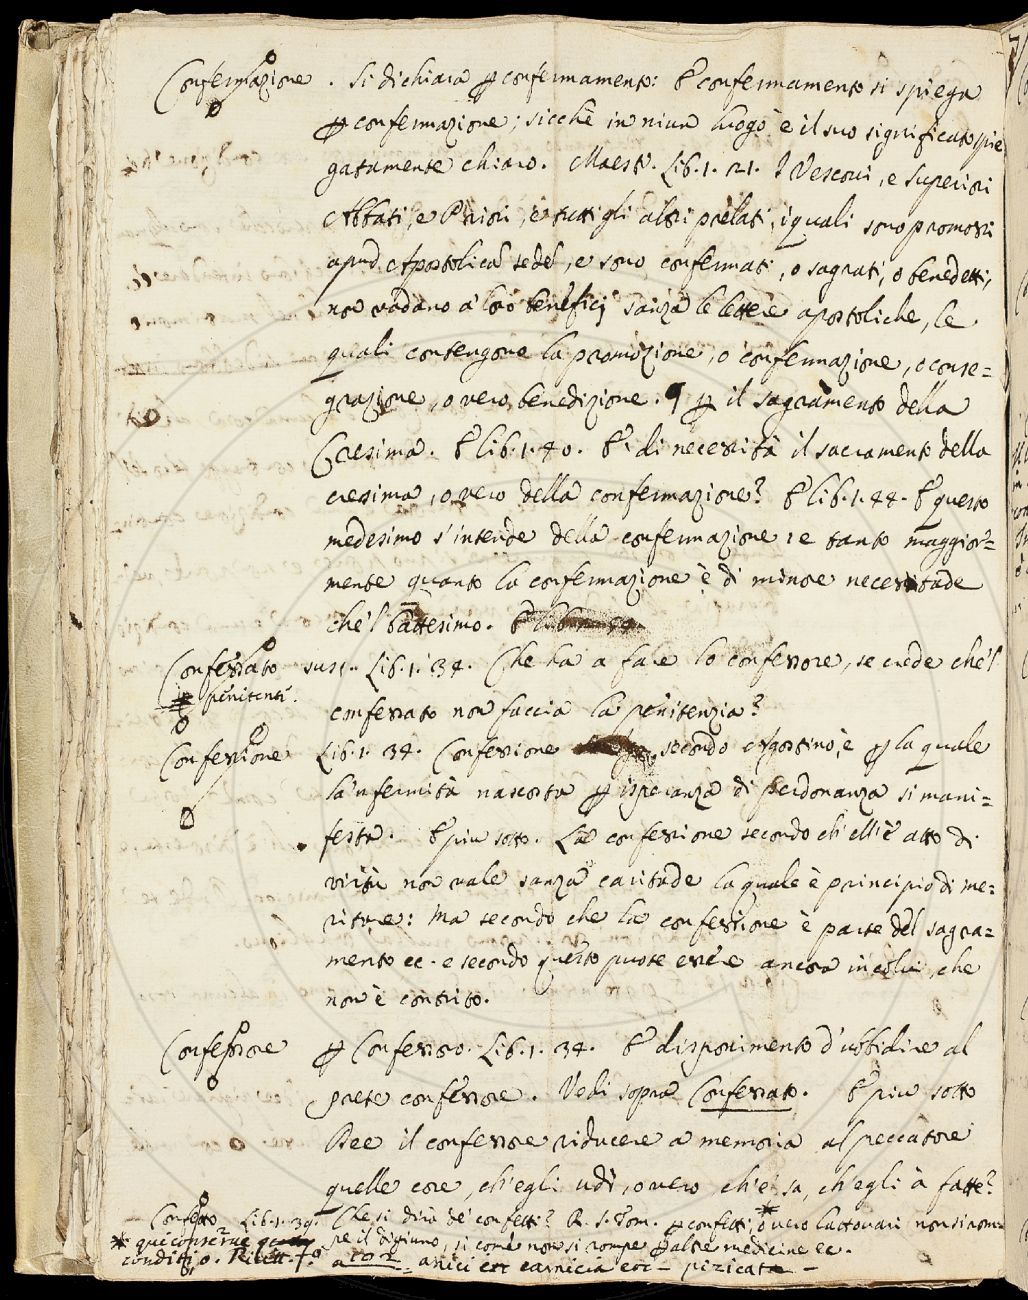 Confermazione. Si dichiara ꝑ confermamento: E confermamento si spiega
ꝑ confermazione; sicchè in niun luogo è il suo significato spie
gatamente chiaro. Maestr. Lib. 1. 21. I Vescovi, e Superiori
Abbati, e Priori, e tutti gli altri prelati, i quali sono promossi
apud Apostolica sede, e sono confermati, o sagrati, o benedetti,
non vadano a' loro beneficj sanza le lettere apostoliche, le
quali contengono la promozione, o confermazione, o conse=
grazione, o vero benedizione. ¶ ꝑ il sagramento della
Cresima. E lib. 1. 40. E' di necessità il sacramento della
cresima, o vero della confermazione? E lib. 1. 44. E questo
medesimo s'intende della confermazione: e tanto maggior=
mente quanto la confermazione è di minore necessitade
che 'l battesimo.
Confessato sust. Lib. 1. 34. Che ha a fare lo confessore, se crede che 'l
* penitente.
confessato non faccia la penitenzia?
Confessione Lib. 1. 34. Confessione secondo Agostino, è ꝑ la quale
la 'nfermità nascosta ꝑ isperanza di perdonanza si mani=
festa. E più sotto. La confessione secondo ch'ell'è atto di
virtù non vale sanza caritade la quale è principio di me=
ritare: Ma secondo che la confessione è parte del sagra=
mento ec. e secondo questo puote essere ancora in colui, che
non è contrito.
Confessore ꝑ Confessoro. Lib. 1. 34. E disponimento d'ubbidire al
prete confessore. Vedi sopra Confessato. E più sotto
Dee il confessore riducere a memoria al peccatore
quelle cose, ch'egli udì, o vero, ch'e' sa, ch'egli à fatte?
Confetto Lib. 1. 39. Che si dirà de' confetti? R. S. Tom. ꝑ confetti, * o vero lattovari non si rom=
pe il digiuno, si come non si rompe ꝑ altre medicine ec.
* qui conserve
condiz. o. Ricett. f.o
a anici ecc carnicia ecc - pizicata -